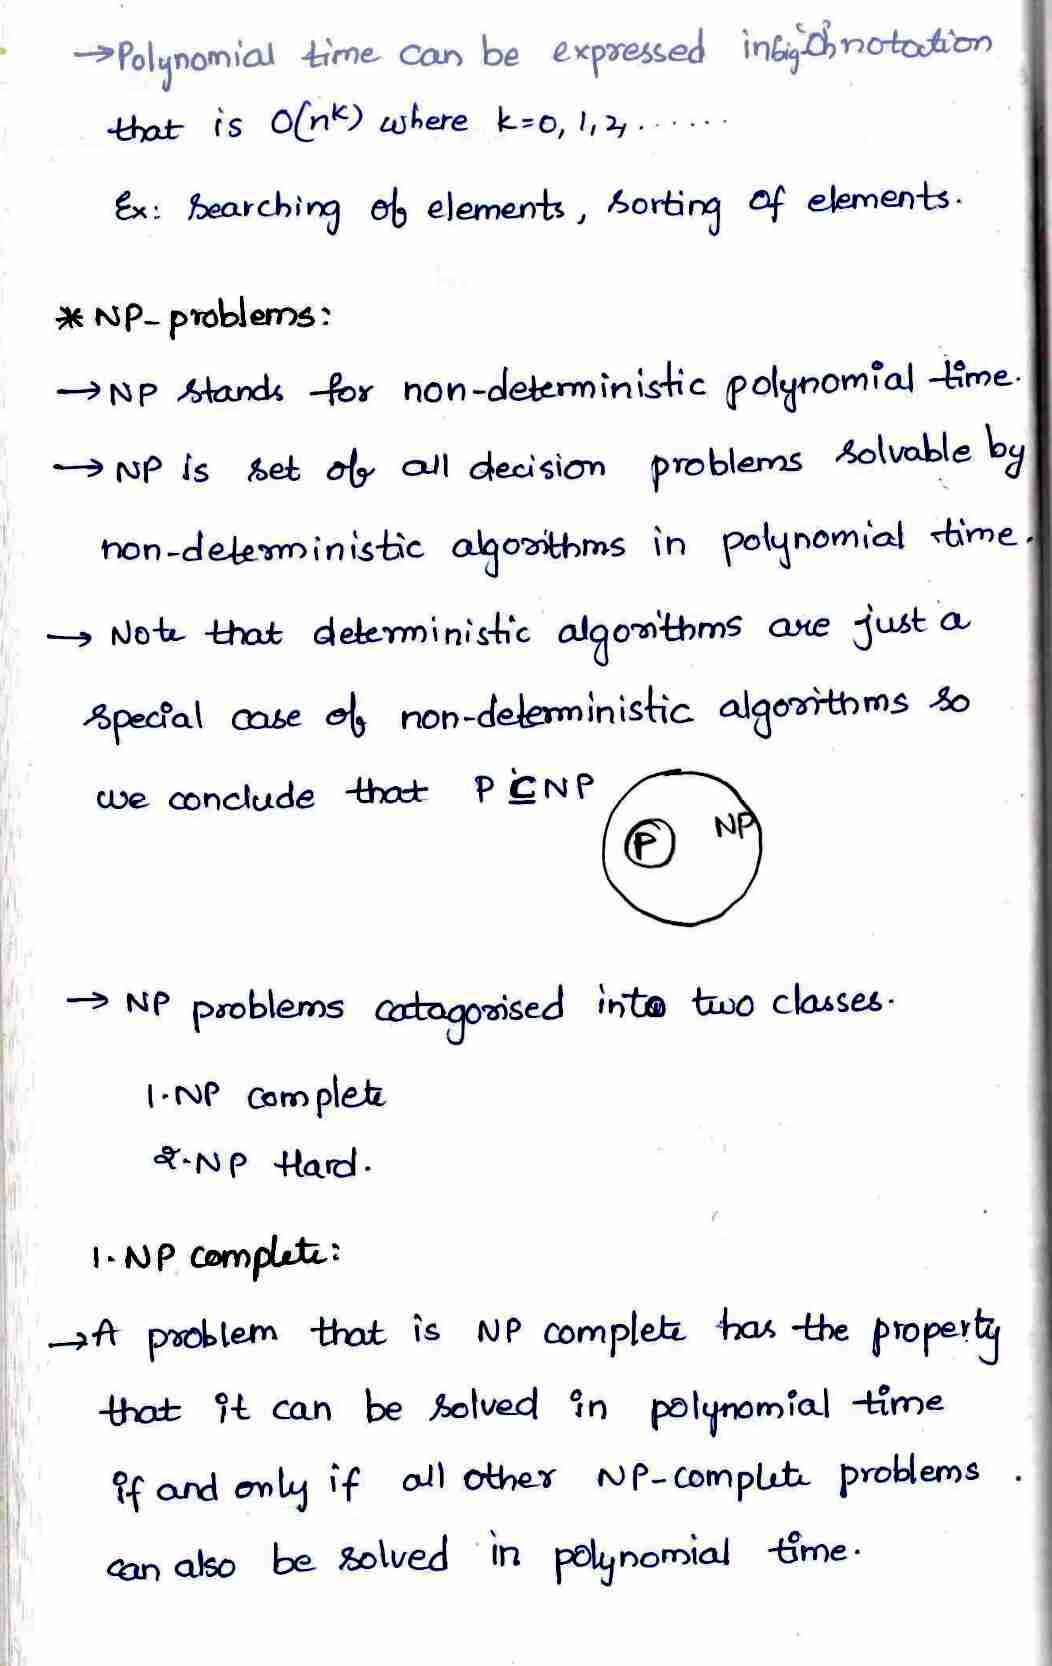 →Polynomial time can be expressed in big 'Oh' notation
that is O(n^k) where k=0, 1, 2, ......
Ex: Searching of elements, sorting of elements.
* NP-problems:
→ NP stands for non-deterministic polynomial time.
→ NP is set of all decision problems solvable by
non-deterministic algorithms in polynomial time.
→ Note that deterministic algorithms are just a
special case of non-deterministic algorithms so
we conclude that P ⊆ NP
P NP
→ NP problems catagorised into two classes.
1. NP complete
2. NP Hard.
1. NP complete:
→ A problem that is NP complete has the property
that it can be solved in polynomial time
if and only if all other NP-complete problems
can also be solved in polynomial time.